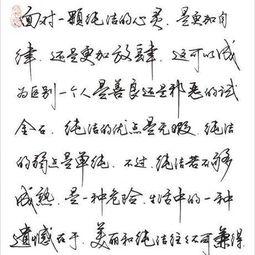 面对一颗纯洁的心灵，是更加自
律，还是更加放肆，这可以成
为区别一个人是善良还是邪恶的试
金石，纯洁的优点是无暇，纯洁
的弱点是单纯，不过，纯洁若不够
成熟，是一种危险，生活中的一种
遗憾在于，美丽和纯洁往往不可兼得